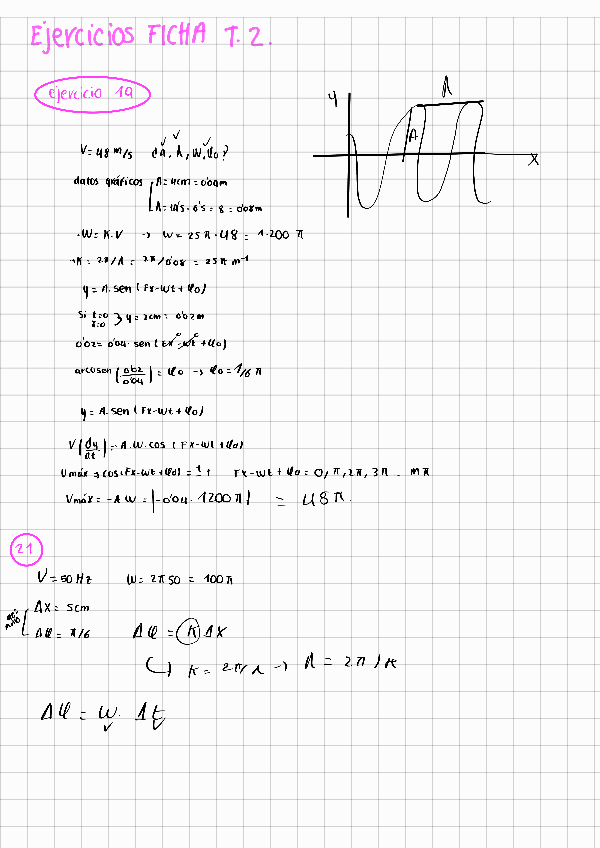 Ejercicios FICHA T.2.
ejercicio 19
y
λ
A
x
V=48 m/s ¿A, λ, W, φ0?
datos gráficos A=4cm=0'04m
λ=14'5-6'5=8=0'08m
·W=K·V → W=25π·48=1·200 π
·K=2π/λ=2π/0'08=25π m⁻¹
y=A·sen(Kx-wt+φ0)
Si t=0 x=0 } y=2cm=0'02m
0'02=0'04·sen(Kx-wt+φ0)
0 0
arcosen(0'02/0'04)=φ0 → φ0=1/6 π
y=A·sen(Kx-wt+φ0)
V(dy/dt)=-A·W·cos(Kx-wt+φ0)
Vmáx → cos(Kx-wt+φ0)=±1 Kx-wt+φ0=0,π,2π,3π...mπ
Vmáx=-A·W=|-0'04·1200π|=48π.
21
V=50Hz W=2π50=100π
Δx=5cm
Δφ=π/6 Δφ=K Δx
K=2π/λ → λ=2π/K
Δφ=W·Δt